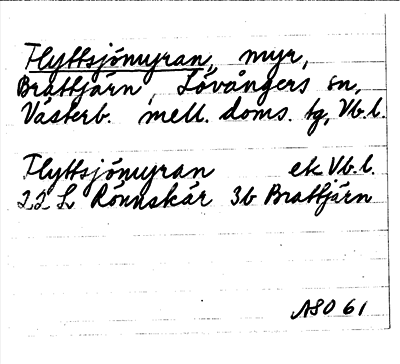 Flyttsjömyran, myr,
Brattjärn, Lövångers sn,
Västerb. mell. doms. tg, Vb. l.
Flyttsjömyran ek Vb. l.
22 L Rönnskär 3b Brattjärn
ASO 61